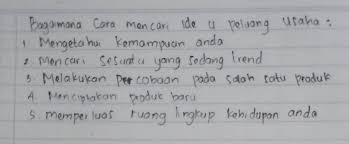 Bagaimana Cara mencari ide u peluang usaha :
1. Mengetahui kemampuan anda
2. Mencari sesuatu yang sedang trend
3. Melakukan percobaan pada salah satu produk
4. Menciptakan produk baru
5. memperluas ruang lingkup kehidupan anda